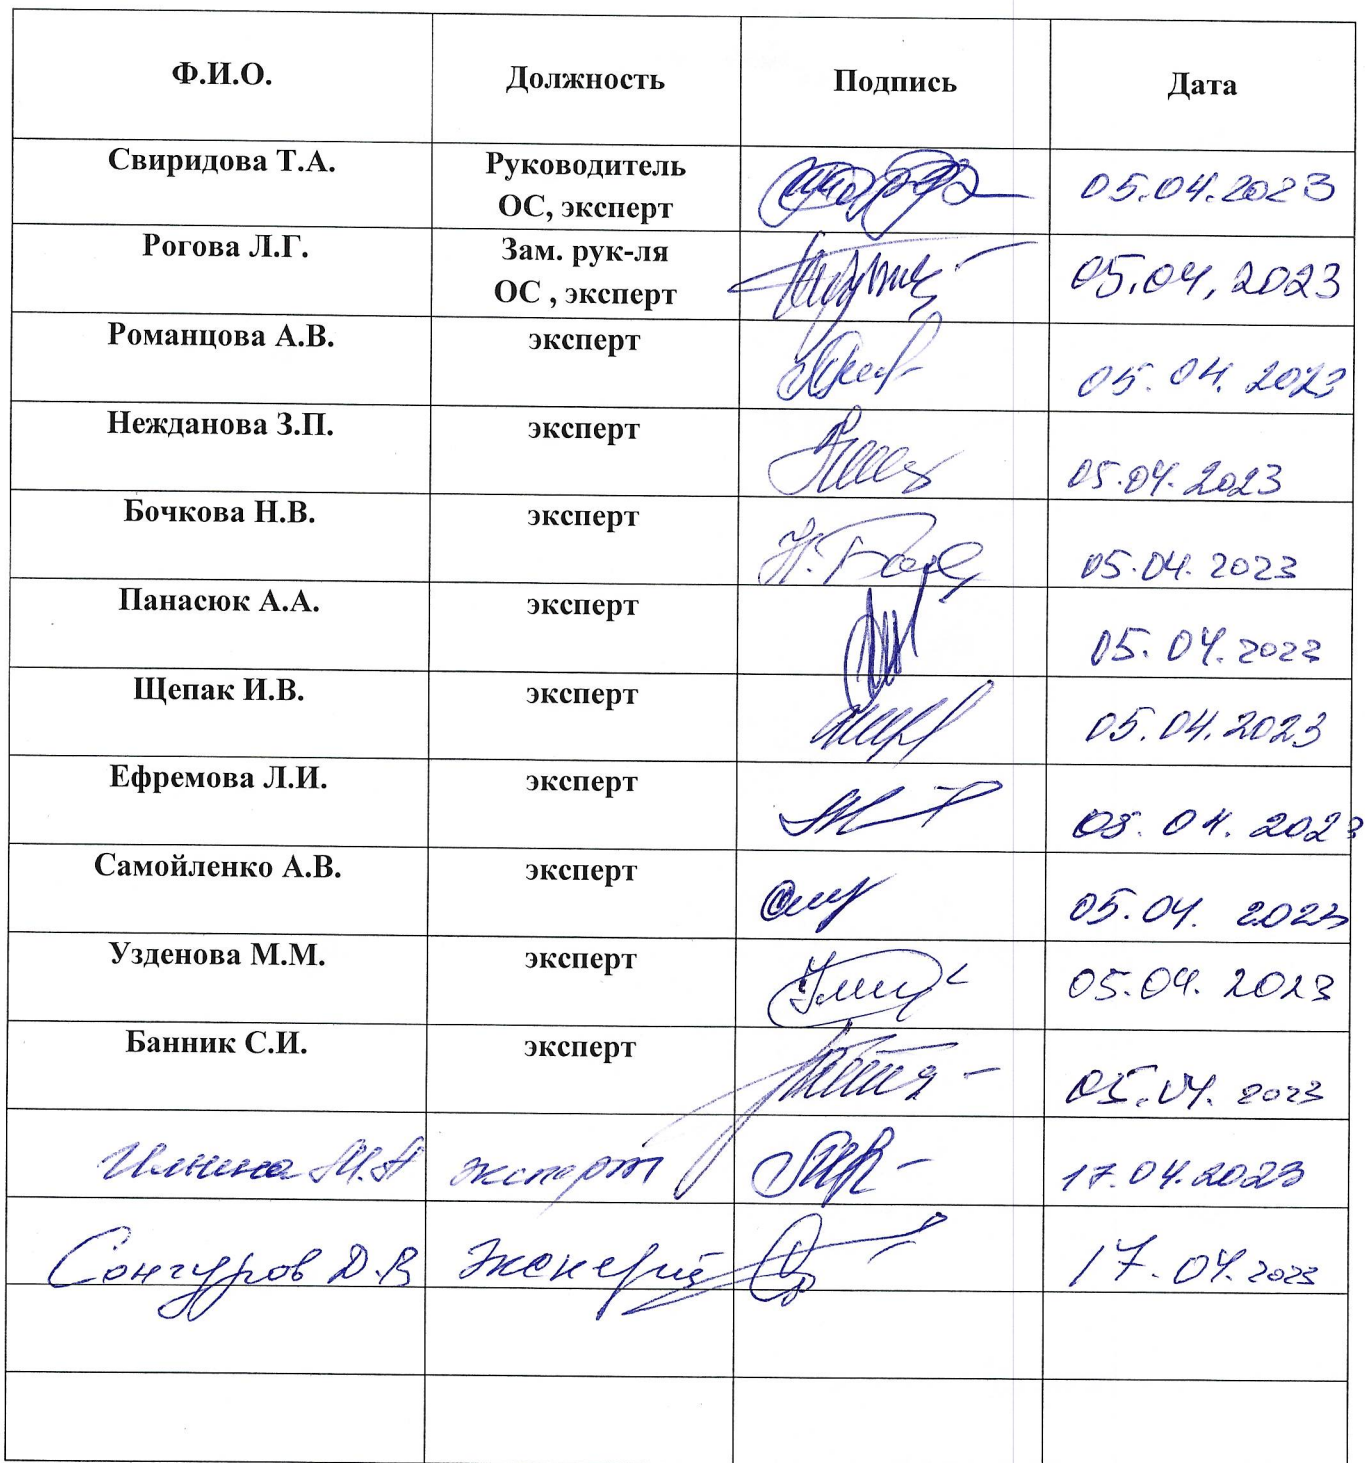 Ф.И.О. Должность Подпись Дата
Свиридова Т.А. Руководитель ОС, эксперт 05.04.2023
Рогова Л.Г. Зам. рук-ля ОС , эксперт 05.04,2023
Романцова А.В. эксперт 05.04.2023
Нежданова З.П. эксперт 05.04.2023
Бочкова Н.В. эксперт 05.04.2023
Панасюк А.А. эксперт 05.04.2023
Щепак И.В. эксперт 05.04.2023
Ефремова Л.И. эксперт 05.04.2023
Самойленко А.В. эксперт 05.04.2023
Узденова М.М. эксперт 05.04.2023
Банник С.И. эксперт 05.04.2023
Ильина М.А эксперт 17.04.2023
Сонгуров Д.В эксперт 17.04.2023